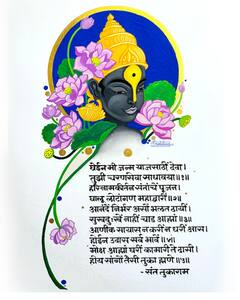 घेईन मी जन्म याजसाठी देवा।
तुझी चरणसेवा साधावया॥१॥
हरिनामकीर्तन संतांचे पूजन।
घालू लोटांगण महाद्वारी॥
आनंदे निर्भर असों भलते ठायी।
सुखदुःखे नाही चाड आम्हां॥३॥
आणीक सायास न करी न धरी आस।
होईन उदास सर्व भावे॥
मोक्ष आम्हां घरी कामारी ते दासी।
होय सांगों तैसी तुका म्हणे॥
- संत तुकाराम